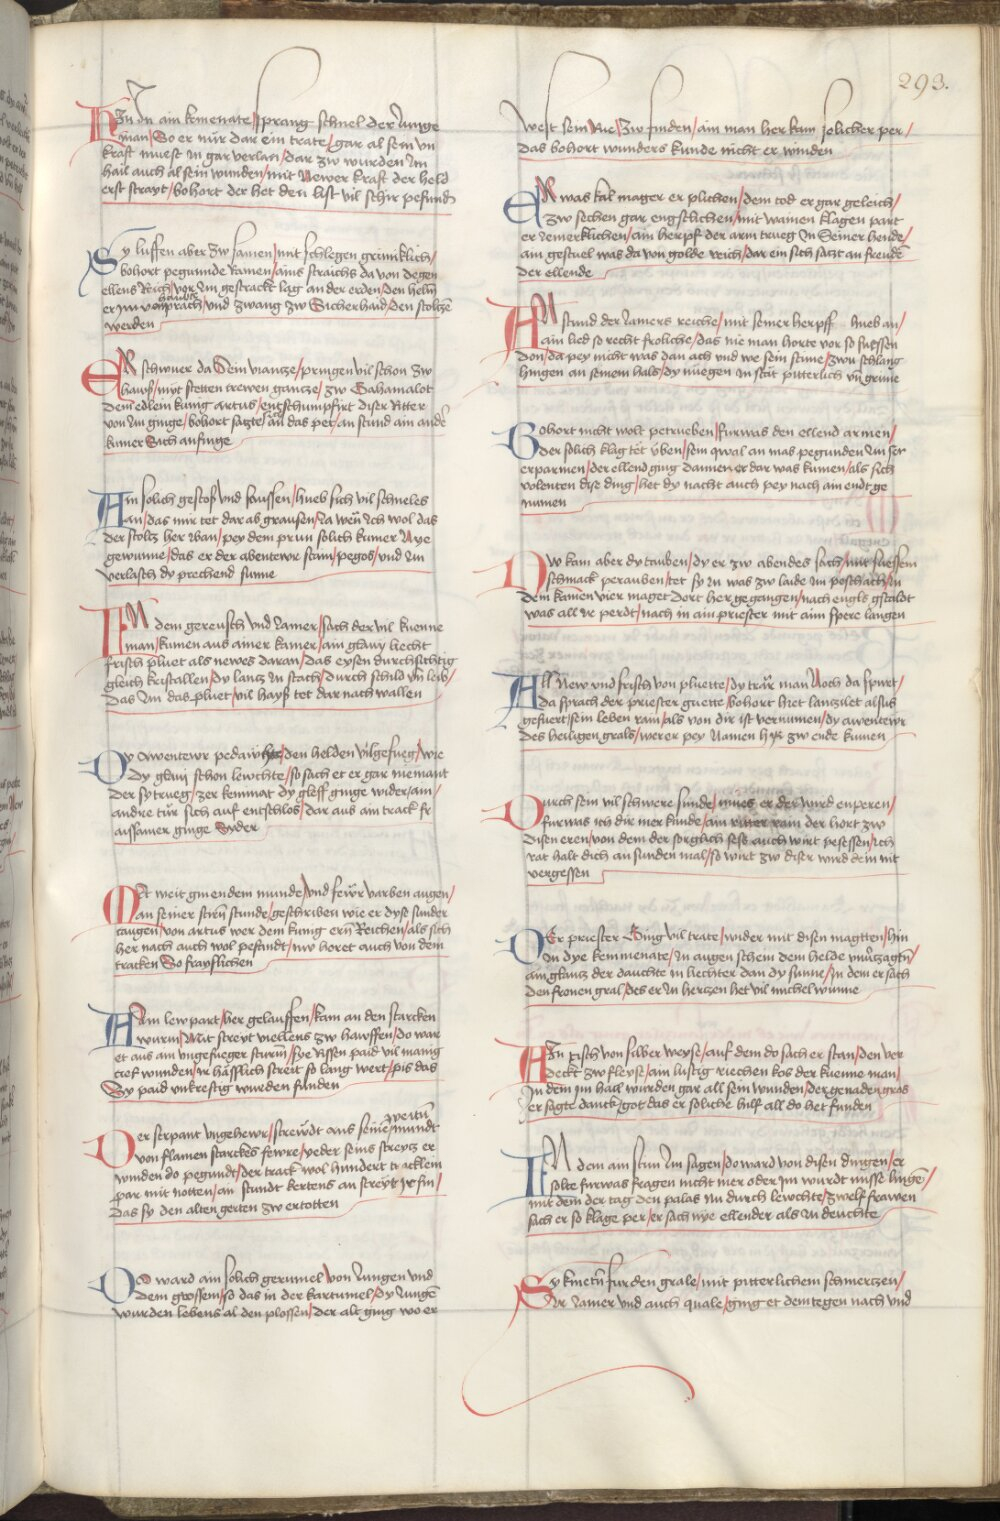 293.
Hin in ain kemenate / sprang schnel der Junge
man / So er nür dar ein trate / gar al sein vn
kraft muest in gar verlan / dar zw wurden Im
hail auch al sein wunden / mit Newer kraft der held
erst strayt / bohort der het den list vil schir pefund
Sy luffen aber zw samen / mit schlegen grimiklich /
bohort pegunde Ramen / ains straichs da von degen
ellens Reich / vor Im gestrackt lag an der erden / den helm
er Im / und zwang zw Sicherhaid / den stoltzē
werden
Er schwuer da Sein vianze / pringen vil schon zw
hawß / mit stetten trewen gantze / zw Gahamalot
dem edlem kunig artus / entschumpfirt diser Ritter
von Im ginge / bohort sagte an das pet / an stund ain ande
kumer Sich anfinge
Ain solich gestos vnd saussen / hueb sich vil schneles
an / das mir tet dar ab grausen / Ja wen ich wol das
der stoltz her Iban / pey dem prun solich kumer Nye
gewunne / das er der abentewr stain / pegos / vnd Im
verlasch dy prechend sunne
In dem gereusch vnd Jamer / sach der vil kuenne
man / kumen aus ainer kamer / ain glauy liecht
frisch pluet als newes daran / das eysen durchsichtig
gleich kristallen / dy lantz In stach / durch schild vn leib /
das Im das pluet / vil hayß tet dar nach wallen
Dy awentewr pedawcht / den helden vilgefueg / wie
dy glauy schon lewchte / so sach et er gar niemant
der sy trueg / zer kemnat dy gleff ginge wider / ain /
andre tür sich auf entschlos / dar aus ain track fr
aissamer ginge Syder
Mit weit ginendem munde / vnd fewr varben augen /
an seiner stirn stunde / geschriben wie er dyse sunder
taugen / von artus wer dem kunig ern Reichen / als sich
her nach auch wol pefindt / nw horet auch von dem
tracken So frayslichen
Ain lewpart / her gelauffen / kam an den starcken
wurm / Mit streyt vellens zw hauffen / do war
et aus ain vngefueger sturm / sye Rissen paid vil manig
tief wunden / ir hasslich streit so lang wert / pis das
Sy paid vnkrestig wurden funden
Der serpant vngehewr / strewdt aus seinē weitn mundt
von flamen starckes fewre / yeder seins streytz er
winden do pegundt / der track wol hundert tracklein
par mit notten / an stundt kertens an streyt Ir sin /
das sy den alten gerten zw ertotten
Do ward ain solich gerumel von Jungen vnd
dem grossem / so das in der kartumel / dy Jungē
wurden lebens al den plossen / der alt ging wo er
west sein Rie / zw finden / ain man her kam solicher per /
das bohort wunders kunde nicht er winden
Er was kal mager er plichen / dem tod er gar geleich /
zw sechen gar engstlichen / mit wainen klagen part
er Jemerklichen / ain herpf der arm trueg In Seiner hende /
ain gestuel was da von golde reich / dar ein sich satzt an freudē
der ellende
An stund der Jamers reiche / mit seiner herpff hueb an /
ain lied so recht froliche / das nie man horte vor so suessen
don / da pey nicht was dan ach vnd we sein stime / zwu schlang
hingen an seinem hals / dy nuegen In stat pitterlich vn grime
Bohort nicht wolt petrueben / furwas den ellend armen /
der solich klag tet yben / sein qwal an mas pegunden Im ser
erparmen / der ellend ging dannen er dar was kumen / als sich
volenten dise ding / het dy nacht auch pey nach ain endt ge
numen
Dw kam aber dy tauben / dy er zw abendes sach / mit suessem
schmack perauben / tet sy In was zw laide Im poschach / In
dem kamen vier maget dort her gegangen / nach engls gstaldt
was all ir perdt / nach in ain priester mit aim spere langen
All New vnd frisch von pluette / dy trär man Noch da spurt /
da sprach der priester guette / bohort hiet lanzulet alsus
gefuert / sein leben rain / als von dir ist vernumen / dy awentewr
des heiligen grals / wer er pey Namen hyr zw ende kumen
Durch sein vil schwere sunde / mues er der wird enperen /
furwas ich dir mer kunde / ain ritter rain der hort zw
disen eren / von dem der sorglich sess auch wirt pesessen / ich
rat halt dich an sunden mal / so wirt zw diser wird dein nit
vergessen
Der priester Ging vil trate / wider mit disen magtten / hin
In dye kemmenate / In augen schein dem helde vnuerzagtn /
ain glantz der dauchte in liechter dan dy sunne / In dem er sach
den fronen gral / des er In hertzen het vil michel wunne
Ain tisch von silber weyse / auf dem do sach er stan / den ver
deckt zw fleyse / ain lustig riechen kos der kuenne man /
In dem im hail wurden gar all sein wunden / der genaden gros
er sagte danck / got das er soliche hilf all do het funden
In dem ain stim Im sagen / do ward von disen dingen / er
solte furwas fragen nicht mer oder im wurdt misse lingē /
mit dem der tag den palas nu durch lewchte / zwelf frawen
sach er so klage per / er sach nye ellender als In deuchte
Sy knietn fur den grale / mit pitterlichem schmertzen /
Ir Jamer vnd auch quale / ging et dem tegen nach vnd